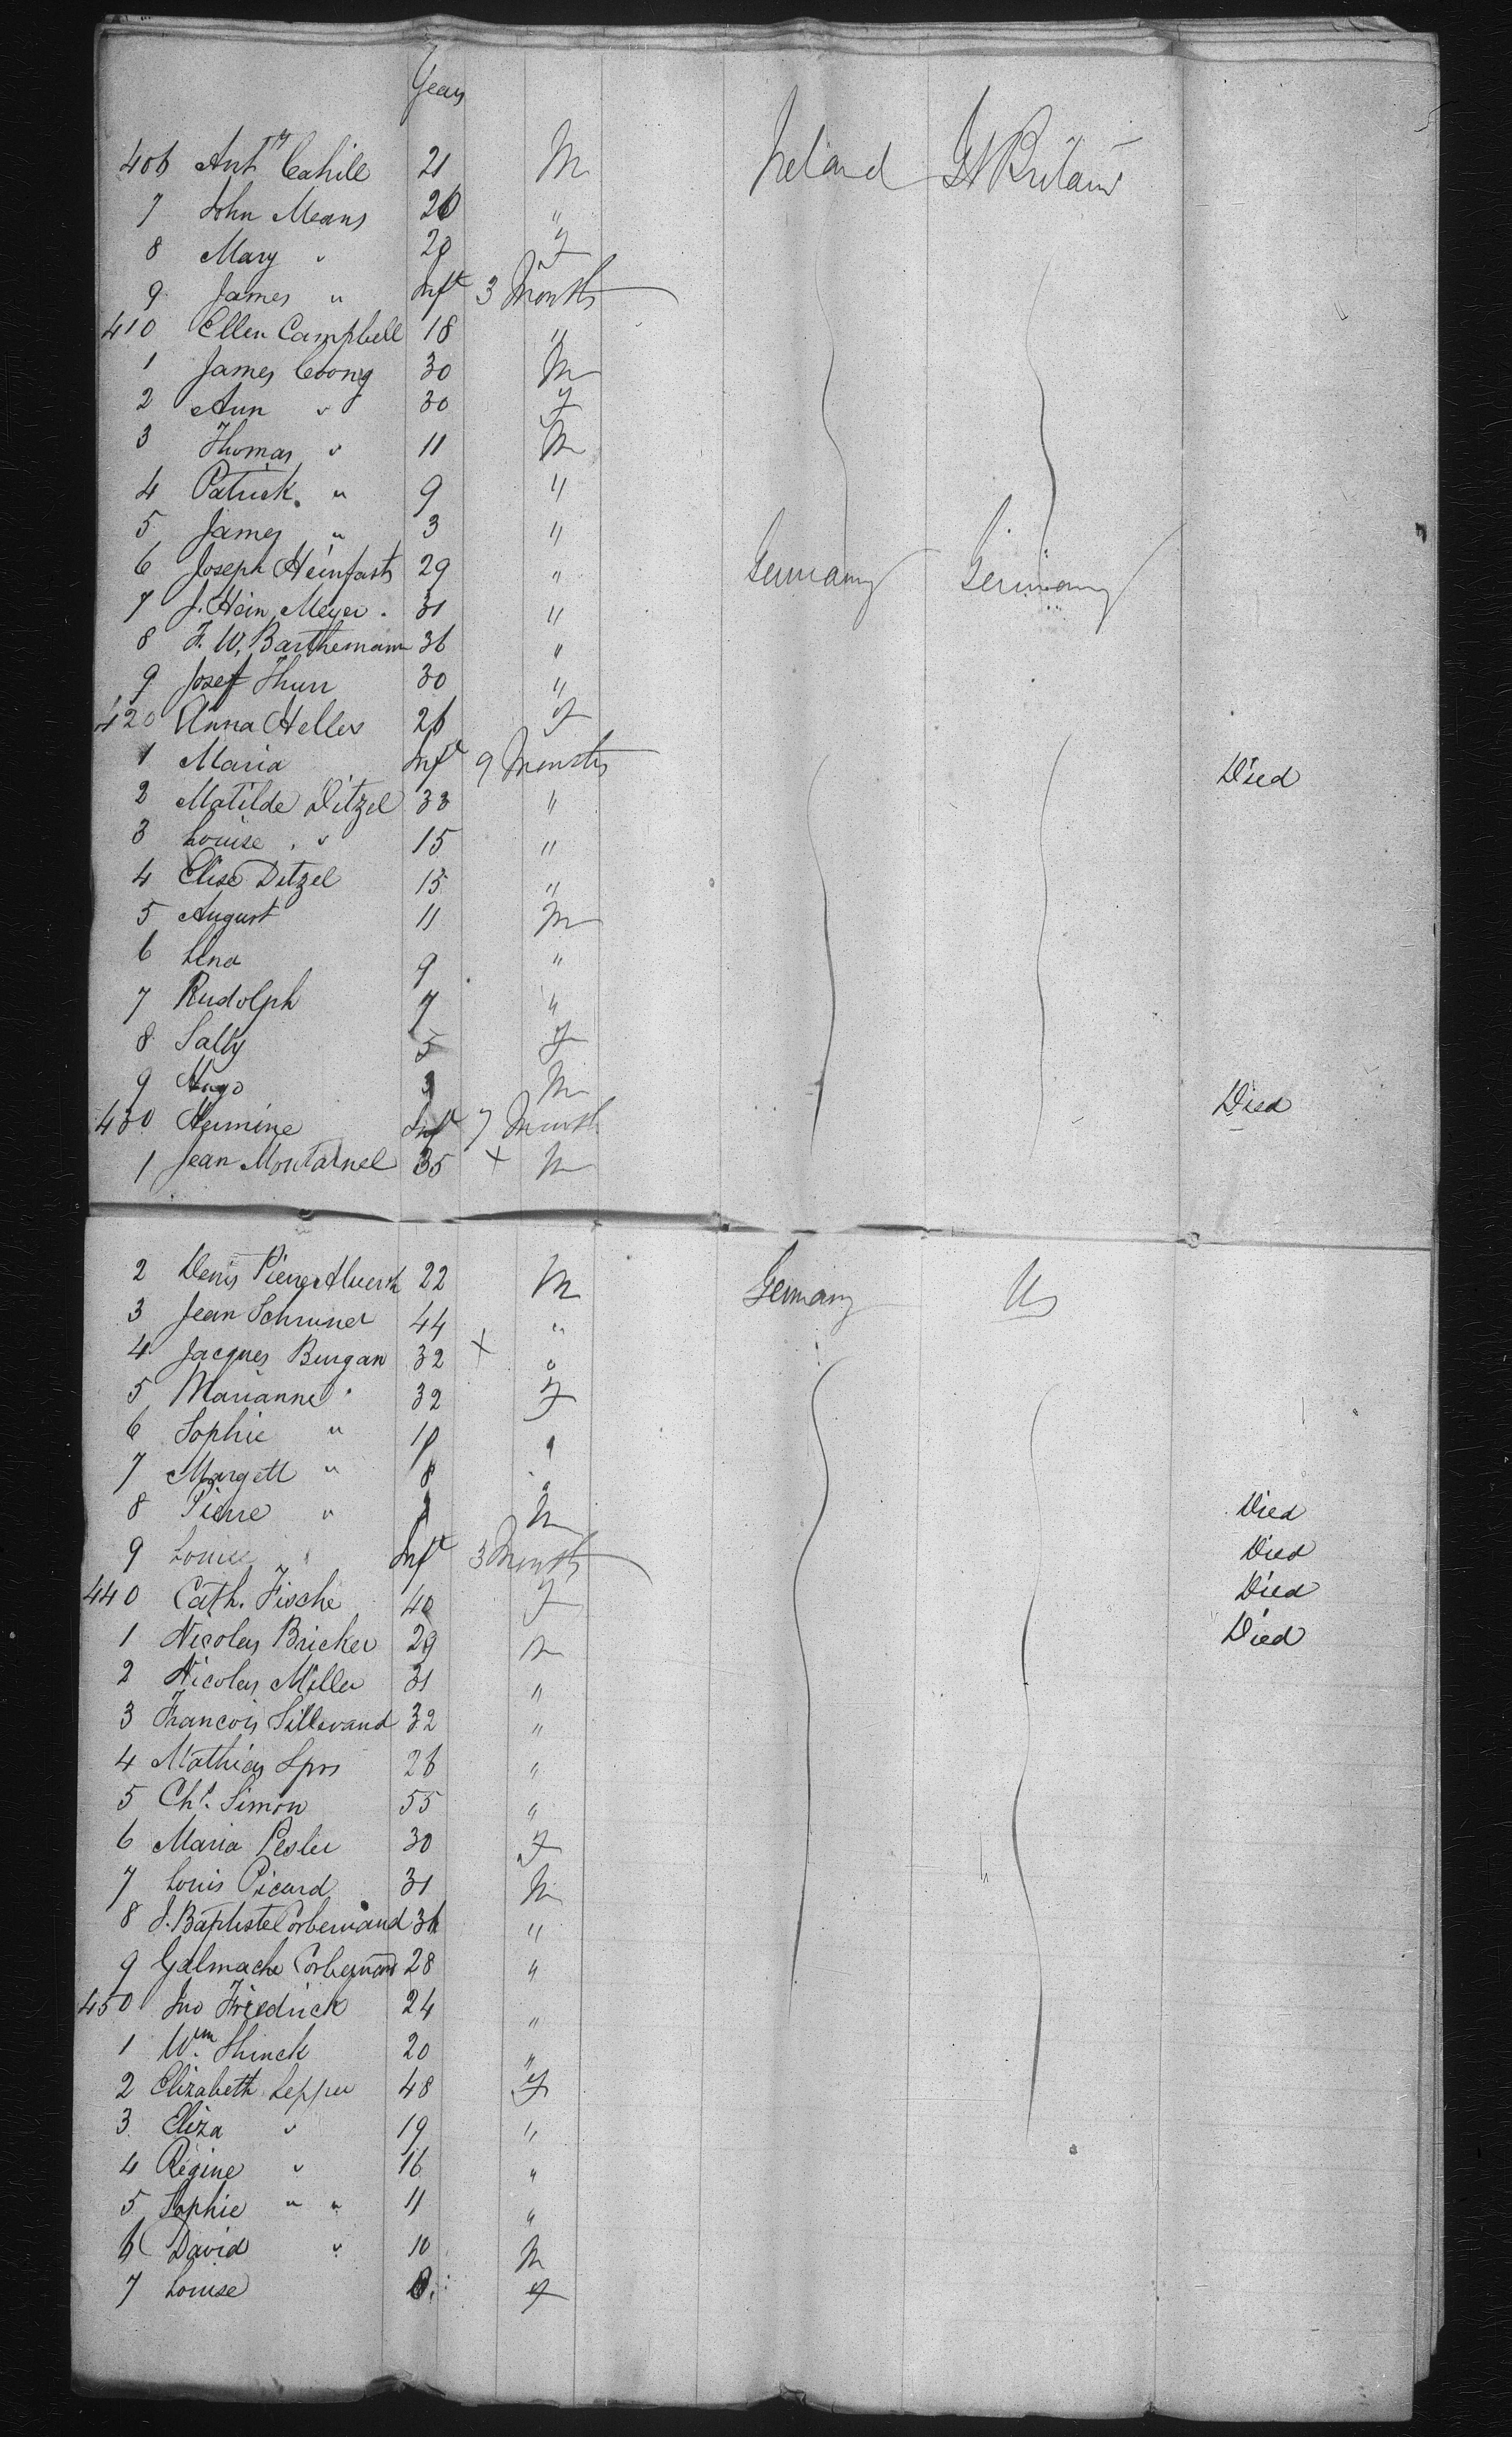 Years
406 Ant^y Cahill 21 M Ireland Gt Britain
7 John Means 26 "
8 Mary " 20 F
9 James " Inft 3 Months
410 Ellen Campbell 18 "
1 James Coony 30 M
2 Ann " 30 F
3 Thomas " 11 M
4 Patrick " 9 "
5 James " 3 "
6 Joseph Heinfarth 29 " Germany Germany
7 J. Hein Meyer 31 "
8 F. W. Barthemann 36 "
9 Josef Thurr 30 "
420 Anna Heller 26 F
1 Maria Inft 9 Months Died
2 Matilde Ditzel 33 "
3 Louise " 15 "
4 Elise Ditzel 13 "
5 August 11 M
6 Lina 9 "
7 Rudolph 7 "
8 Sally 5 F
9 Hugo 3 M
430 Hermine Inft 7 Month Died
1 Jean Montarnel 35 + M
2 Denis Pierre 22 M Germany US
3 Jean Schruner 44 "
4 Jacques Burgan 32 + "
5 Marianne " 32 F
6 Sophie " "
7 Margett " 8 "
8 Pierre " M Died
9 Louise " Inft 3 Months Died
440 Cath. Fische 40 F Died
1 Nicolas Bricker 29 M Died
2 Nicolas Miller 31 "
3 Francois Sillevand 32 "
4 Mathias Spos 26 "
5 Chs. Simon 55 "
6 Maria Pesler 30 F
7 Louis Picard 31 M
8 J. Baptiste Corbernand 36 "
9 Galmache Corbernand 28 "
450 Jno Friedrick 24 "
1 Wm. Shinck 20 "
2 Elizabeth Lepper 48 F
3 Eliza " 19 "
4 Regine " 16 "
5 Sophie " " 11 "
6 David " 10 M
7 Louise 8 F